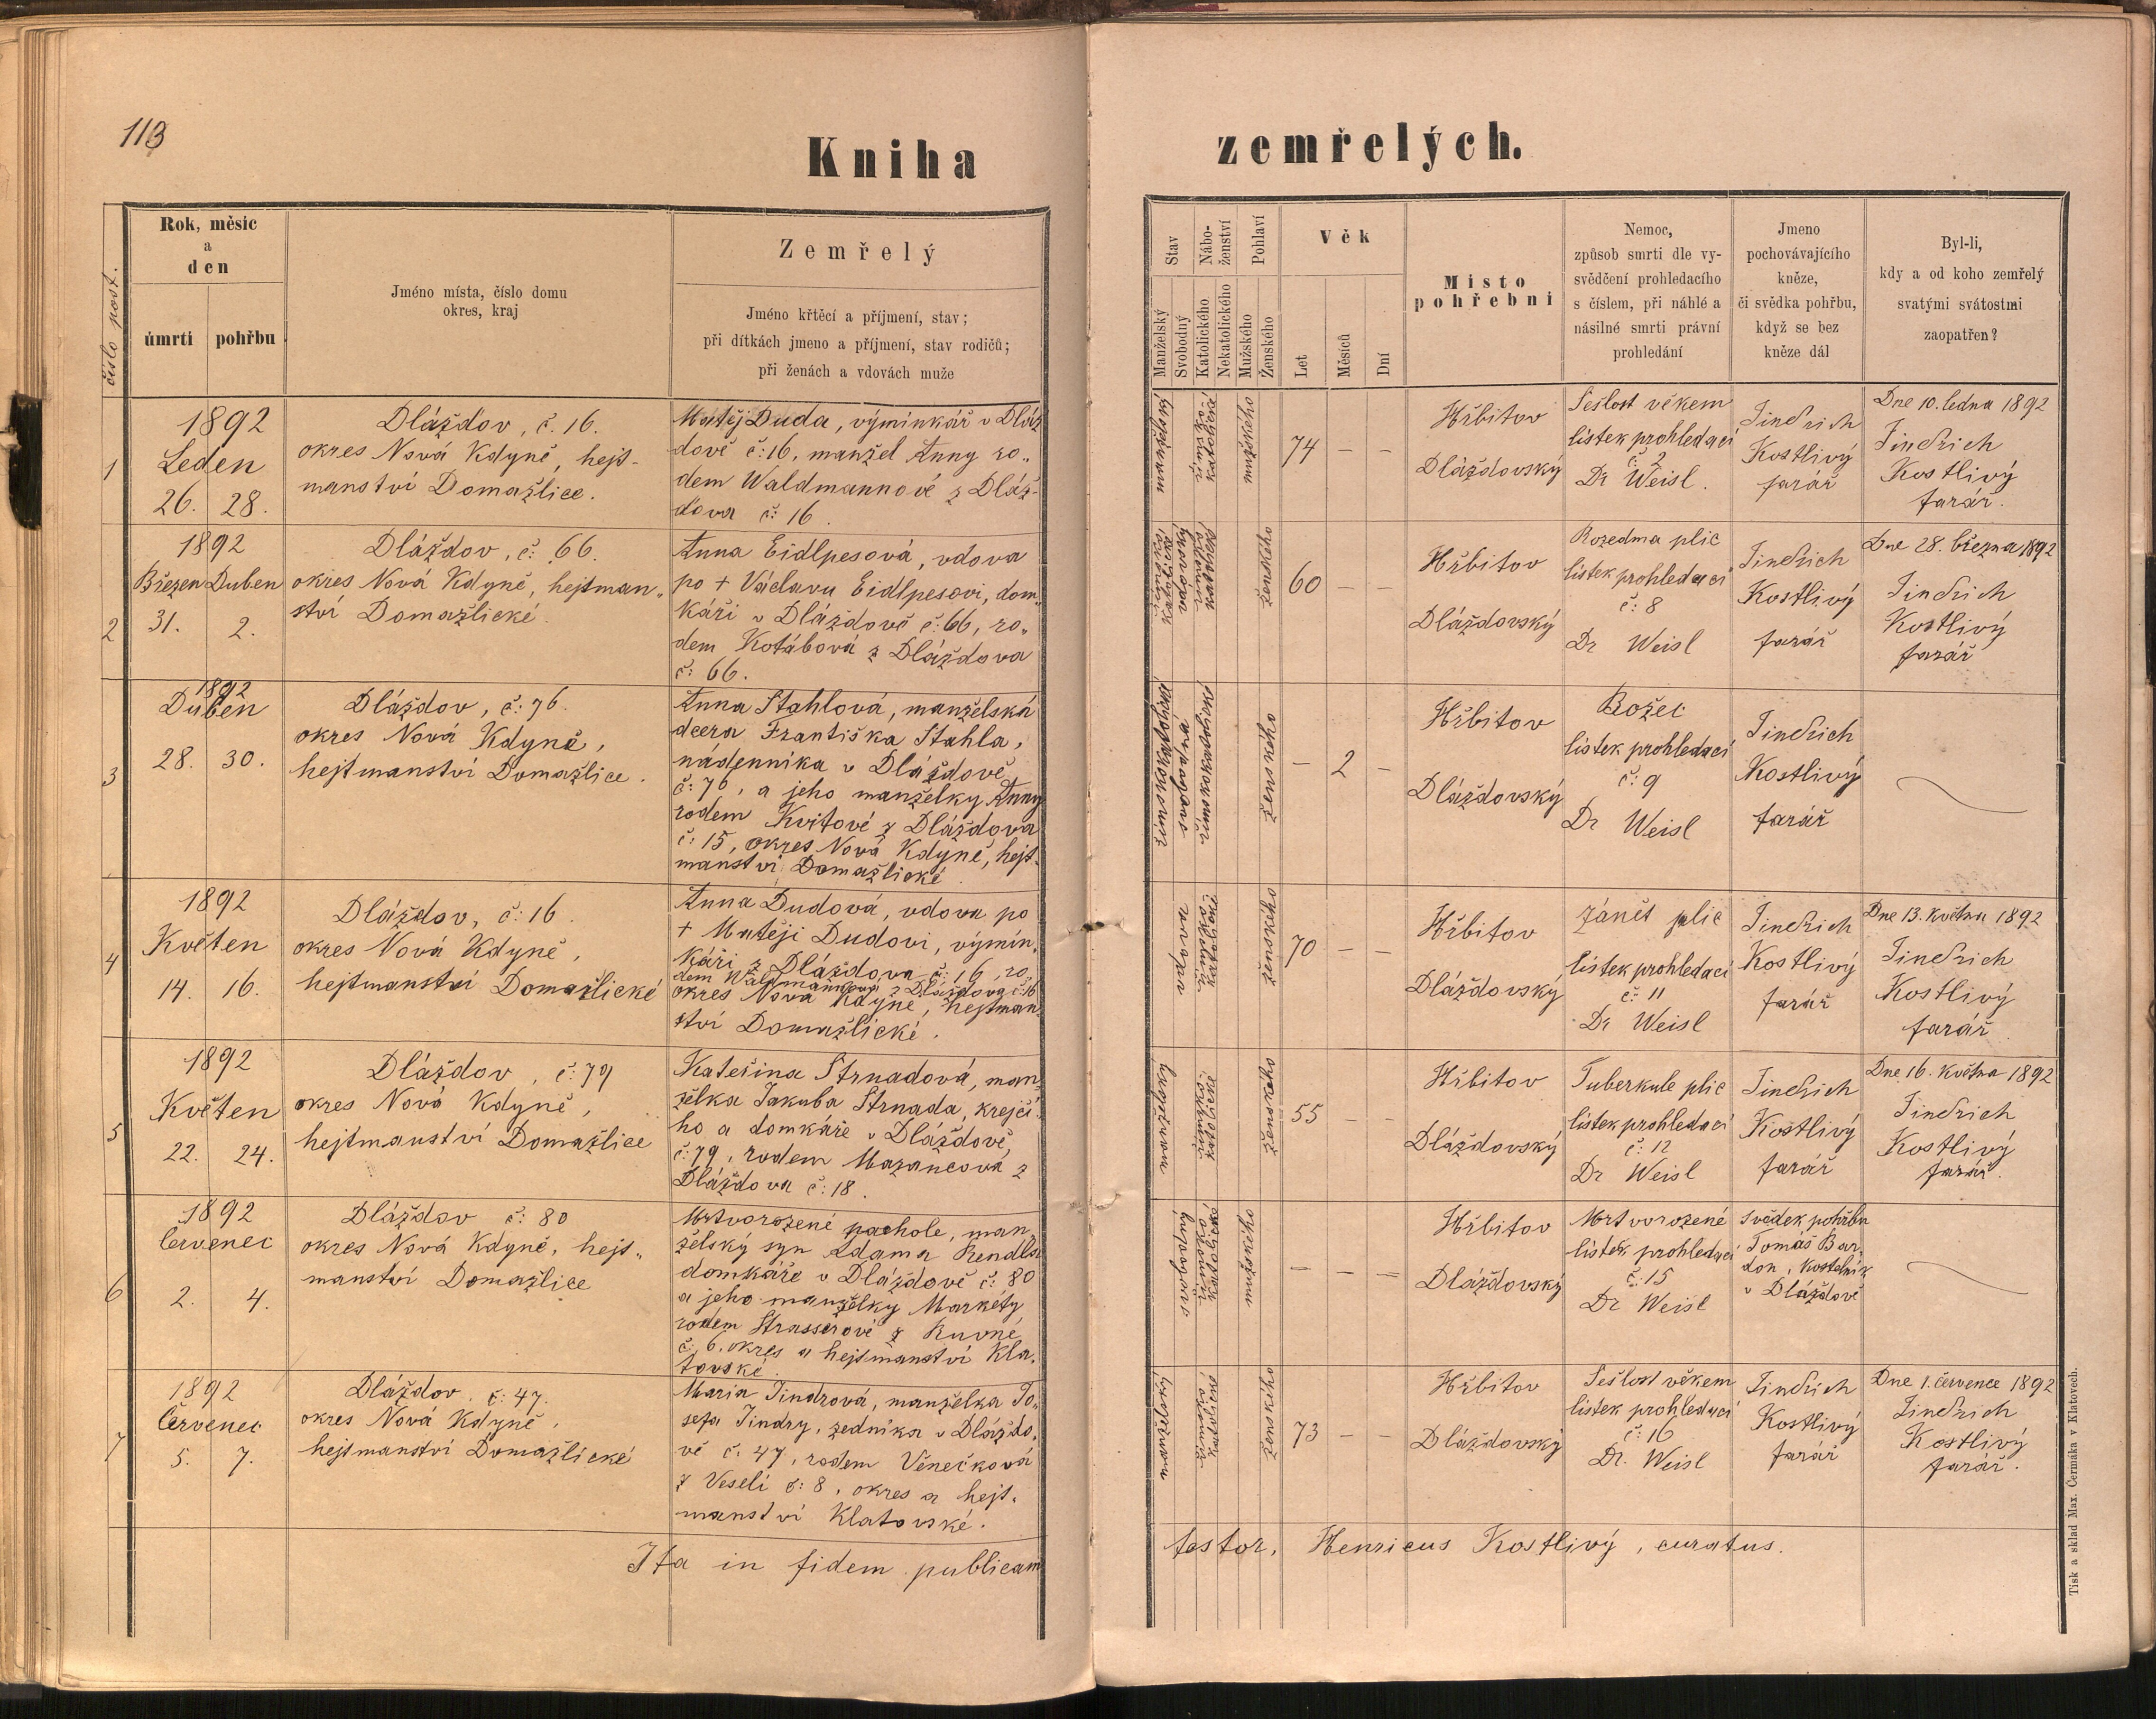 113
Kniha zemřelých.
číslo post.
Rok, měsíc
a
den
úmrtí
pohřbu
Jméno místa, číslo domu
okres, kraj
Zemřelý
Jméno křtěcí a příjmení, stav;
při dítkách jmeno a příjmení, stav rodičů;
při ženách a vdovách muže
Stav
Manželský
Svobodný
Nábo-
ženství
Katolického
Nekatolického
Pohlaví
Mužského
Ženského
Věk
Let
Měsíců
Dní
Místo
pohřební
Nemoc,
způsob smrti dle vy-
svědčení prohledacího
s číslem, při náhlé a
násilné smrti právní
prohledání
Jmeno
pochovávajícího
kněze,
či svědka pohřbu,
když se bez
kněze dál
Byl-li,
kdy a od koho zemřelý
svatými svátostmi
zaopatřen?
1
1892
Leden
26. 28.
Dlážďov, č. 16.
okres Nová Kdyně, hejt-
manství Domažlice.
Matěj Duda, výminkář v Dláž
dově č: 16, manžel Anny ro„
dem Waldmannové z Dláž-
dova č: 16.
ženatý
mužského
74 – –
Hřbitov
Dlážďovský
Sešlost věkem
lístek prohledací
č: 2
Dr Weisl.
Jindřich
Kostlivý
farář
Dne 10. ledna 1892
Jindřich
Kostlivý
farář.
2
1892
Březen Duben
31. 2.
Dlážďov, č: 66.
okres Nová Kdyně, hejtman„
ství Domažlické.
Anna Eidlpesová, vdova
po + Václavu Eidlpesovi, dom„
káři v Dláždově č: 66, ro„
dem Kotábová z Dlážďova
č: 66.
ženského
60 – –
Hřbitov
Dlážďovský
Rozedma plic
lístek prohledací
č: 8
Dr Weisl
Jindřich
Kostlivý
farář
Dne 28. března 1892
Jindřich
Kostlivý
farář
3
1892
Duben
28. 30.
Dlážďov, č: 76.
okres Nová Kdyně,
hejtmanství Domažlice.
Anna Stahlová, manželská
dcera Františka Stahla,
nádenníka v Dláždově
č: 76, a jeho manželky Anny
rodem Kvitové z Dlážďova
č: 15, okres Nová Kdyně, hejt-
manství Domažlické
svobodná
ženského
– 2 –
Hřbitov
Dlážďovský
Božec
lístek prohledací
č: 9
Dr Weisl
Jindřich
Kostlivý
farář
4
1892
Květen
14. 16.
Dlážďov, č: 16.
okres Nová Kdyně,
hejtmanství Domažlické
Anna Dudová, vdova po
+ Matěji Dudovi, výmin„
káři z Dlážďova č: 16, ro„
dem Waldmannová z Dlážďova č: 16
okres Nová Kdyně, hejtman„
ství Domažlické.
vdova
ženského
70 – –
Hřbitov
Dlážďovský
Zánět plic
lístek prohledací
č: 11
Dr Weisl
Jindřich
Kostlivý
farář
Dne 13. května 1892
Jindřich
Kostlivý
farář.
5
1892
Květen
22. 24.
Dlážďov, č: 79
okres Nová Kdyně,
hejtmanství Domažlice
Kateřina Strnadová, man„
želka Jakuba Strnada, krejčí„
ho a domkáře v Dláždově,
č: 79, rodem Mazancová z
Dlážďova č: 18.
ženského
55 – –
Hřbitov
Dlážďovský
Tuberkule plic
lístek prohledací
č: 12
Dr Weisl
Jindřich
Kostlivý
farář
Dne 16. května 1892
Jindřich
Kostlivý
farář.
6
1892
Červenec
2. 4.
Dlážďov č: 80
okres Nová Kdyně, hejt„
manství Domažlice
Mrtvorozené pachole, man„
želský syn Adama Rendla
domkáře v Dláždově č: 80
a jeho manželky Markéty
rodem Strasserové z Ruvné
č. 6. okres a hejtmanství Kla„
tovské.
svobodný
mužského
– – –
Hřbitov
Dlážďovský
Mrtvorozené
lístek prohledací
č: 15
Dr Weisl
Svědek pohřbu
Tomáš Bar„
don, kostelník
v Dláždově
7
1892
Červenec
5. 7.
Dlážďov č: 47.
okres Nová Kdyně,
hejtmanství Domažlické
Maria Jindrová, manželka Jo„
sefa Jindry, zedníka v Dláždo„
vě č. 47, rodem Věnečková
z Veselí č: 8, okres a hejt„
manství Klatovské.
ženského
73 – –
Hřbitov
Dlážďovský
Sešlost věkem
lístek prohledací
č: 16
Dr. Weisl
Jindřich
Kostlivý
farář
Dne 1. července 1892
Jindřich
Kostlivý
farář.
Ita in fidem publicam testor, Henricus Kostlivý, curatus.
Tisk a sklad Max. Čermáka v Klatovech.